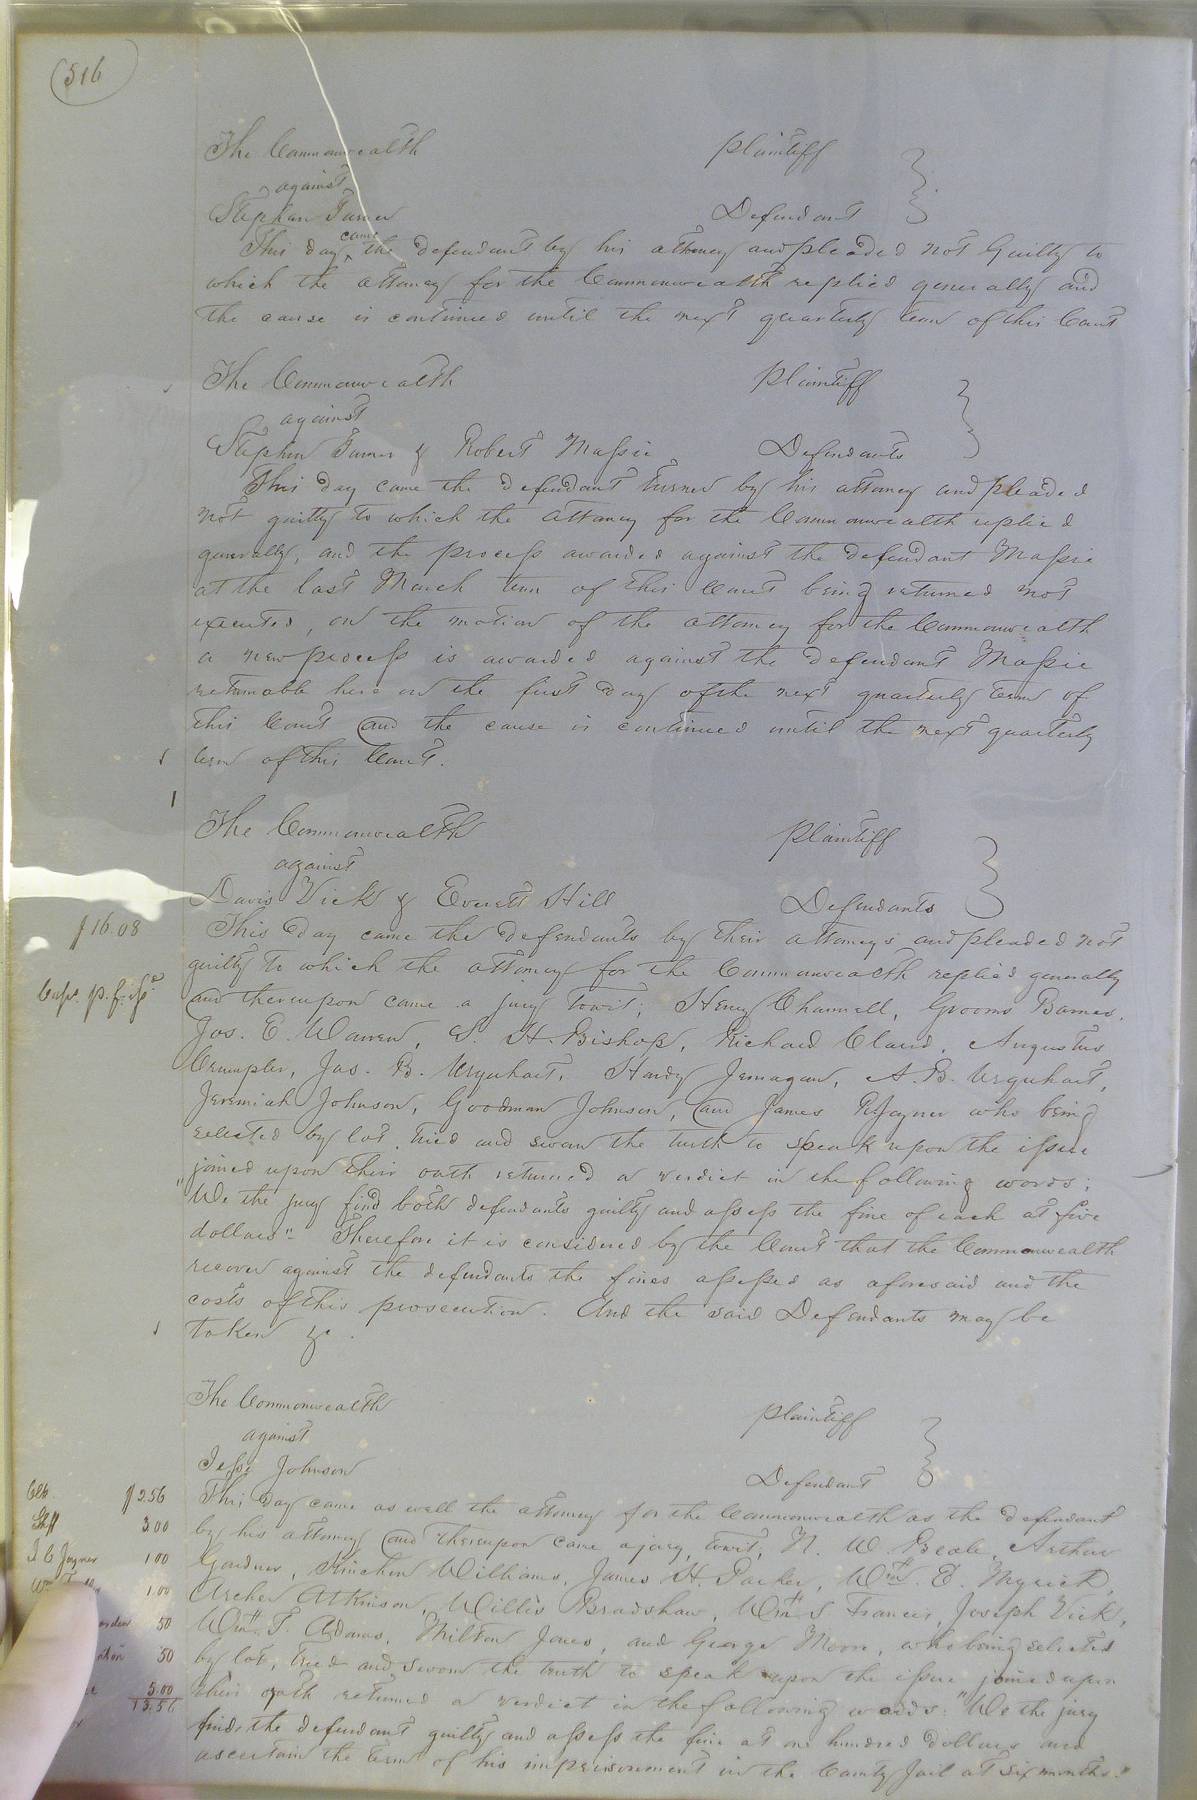 516
The Commonwealth Plaintiff
against
Stephen Turner Defendant
This day came the defendant by his attorney and pleaded not Guilty to
which the attorney for the Commonwealth replied generally and
the cause is continued until the next quarterly term of this Court
The Commonwealth Plaintiff
against
Stephen Turner & Robert Massie Defendants
This day came the defendant Turner by his attorney and pleaded
not guilty to which the attorney for the Commonwealth replied
generally, and the process awarded against the defendant Massie
at the last March term of this Court being returned not
executed, on the motion of the attorney for the Commonwealth
a new process is awarded against the defendant Massie
returnable here on the first day of the next quarterly term of
this Court and the cause is continued until the next quarterly
term of this Court.
The Commonwealth Plaintiff
against
Davis Vick & Everett Hill Defendants
$16.08
This day came the defendants by their attorneys and pleaded not
guilty to which the attorney for the Commonwealth replied generally
and thereupon came a jury towit; Henry Channell, Grooms Barnes,
Jos. E. Warren, S. H. Bishop, Richard Claud, Augustus
Crumpler, Jas. B. Urquhart, Hardy Jernagan, A. B. Urquhart,
Jeremiah Johnson, Goodman Johnson, and James Joyner who being
selected by lot, tried and sworn the truth to speak upon the issue
joined upon their oath returned a verdict in the following words;
"We the jury find both defendants guilty and assess the fine of each at five
dollars" - Therefore it is considered by the Court that the Commonwealth
recover against the defendants the fines assessed as aforesaid and the
costs of this prosecution. And the said Defendants may be
taken &c.
The Commonwealth Plaintiff
against
Jesse Johnson Defendant
Clk. $2.56
Shff 3.00
J C Joyner 1.00
1.00
50
50
5.00
13.56
This day came as well the attorney for the Commonwealth as the defendant
by his attorney and thereupon came a jury, towit; N. W. Beale, Arthur
Gardner, Kinchen Williams, James H. Parker, Wm. E. Myrick,
Archer Atkinson, Willis Bradshaw, Wm. S Francis, Joseph Vick,
Wm. T. Adams, Milton Jones, and George Moore, who being selected
by lot, tried and sworn the truth to speak upon the issue joined upon
their oath returned a verdict in the following words: "We the jury
find the defendant guilty and assess the fine at one hundred dollars and
ascertain the term of his imprisonment in the County Jail at six months."